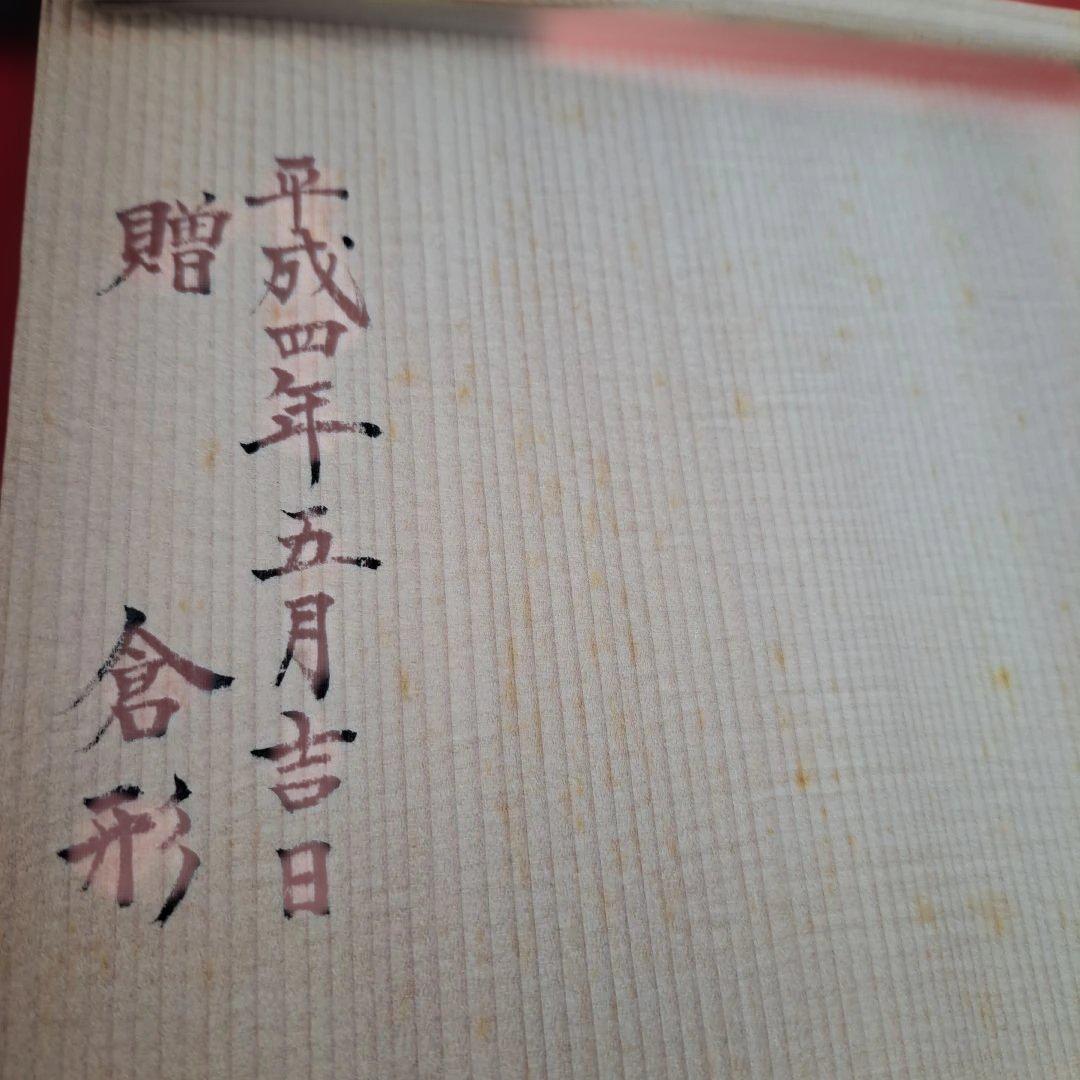 平成四年五月吉日
贈 倉形